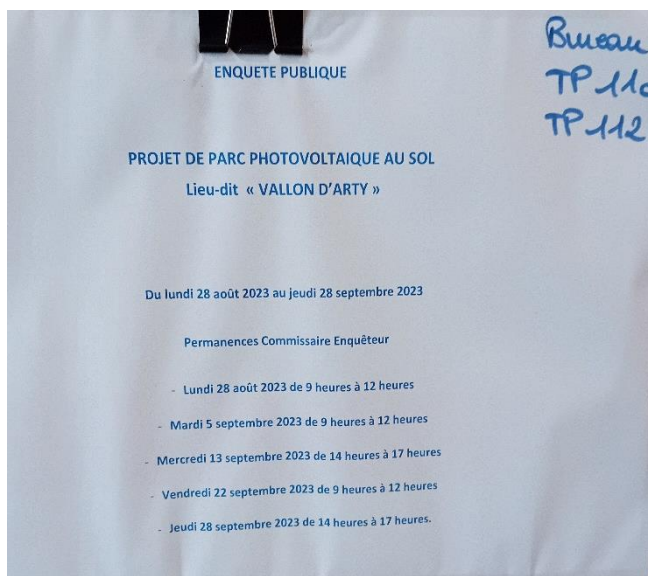 Bureau
TP 110
TP 112
ENQUETE PUBLIQUE
PROJET DE PARC PHOTOVOLTAIQUE AU SOL
Lieu-dit « VALLON D'ARTY »
Du lundi 28 août 2023 au jeudi 28 septembre 2023
Permanences Commissaire Enquêteur
- Lundi 28 août 2023 de 9 heures à 12 heures
- Mardi 5 septembre 2023 de 9 heures à 12 heures
- Mercredi 13 septembre 2023 de 14 heures à 17 heures
- Vendredi 22 septembre 2023 de 9 heures à 12 heures
- Jeudi 28 septembre 2023 de 14 heures à 17 heures.